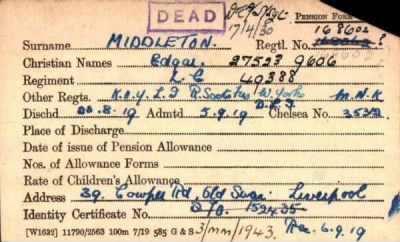 DEAD
17/4/30
PENSION FORM
168602
Surname MIDDLETON. Regtl. No.
Christian Names Edgar. 27523 9606
Regiment L C 40388
Other Regts. K.O.Y.L.I R. Scots Fus W. Yorks M.N.K
D.L.I
Dischd 8.19 Admtd 5.9.19 Chelsea No.
Place of Discharge
Date of issue of Pension Allowance
Nos. of Allowance Forms
Rate of Children's Allowance
Address 39. Cowper Rd, Old Swan: Liverpool
Identity Certificate No. 152435
[W1632] 11790/2563 100m 7/19 585 G & S 3/mm/1943. 6.9.19